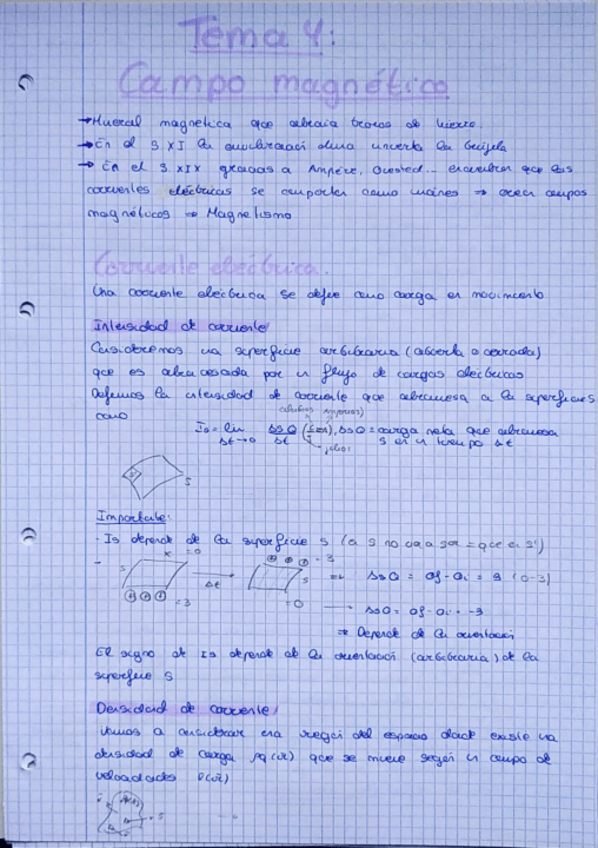 Tema 4:
Campo magnético
→ Mineral magnetica que atraia trozos de hierro.
→ En el S XI la china inventa la brújula
→ En el S XIX gracias a Ampére, Oersted... encuentran que las
corrientes eléctricas se comportan como imanes ⇒ crean campos
magnéticos ⇒ Magnetismo
Corriente eléctrica.
Una corriente eléctrica se define como carga en movimiento
Intensidad de corriente
Consideremos una superficie arbitraria (abierta o cerrada)
que es atravesada por un flujo de cargas eléctricas
Definimos la intensidad de corriente que atraviesa a la superficie S
como
Is = lim Δt→0 ΔsQ/Δt , ΔsQ = carga neta que atraviesa
S en un tiempo Δt
S' S
Importante:
- Is depende de la superficie S (a S no va a ser = que en S')
- S = 0 - 3
Δt → S ⇒ ΔsQ = Qf - Qi = 3 (0-3)
= 3 = 0 → ΔsQ = Qf - Qi = -3
⇒ Depende de la orientació
El signo de Is depende de la orientació (arbitraria) de la
superficie S
Densidad de corriente
Vamos a considerar una regió del espacio donde existe una
densidad de carga ρq (r) que se mueve según un campo de
velocidades
S